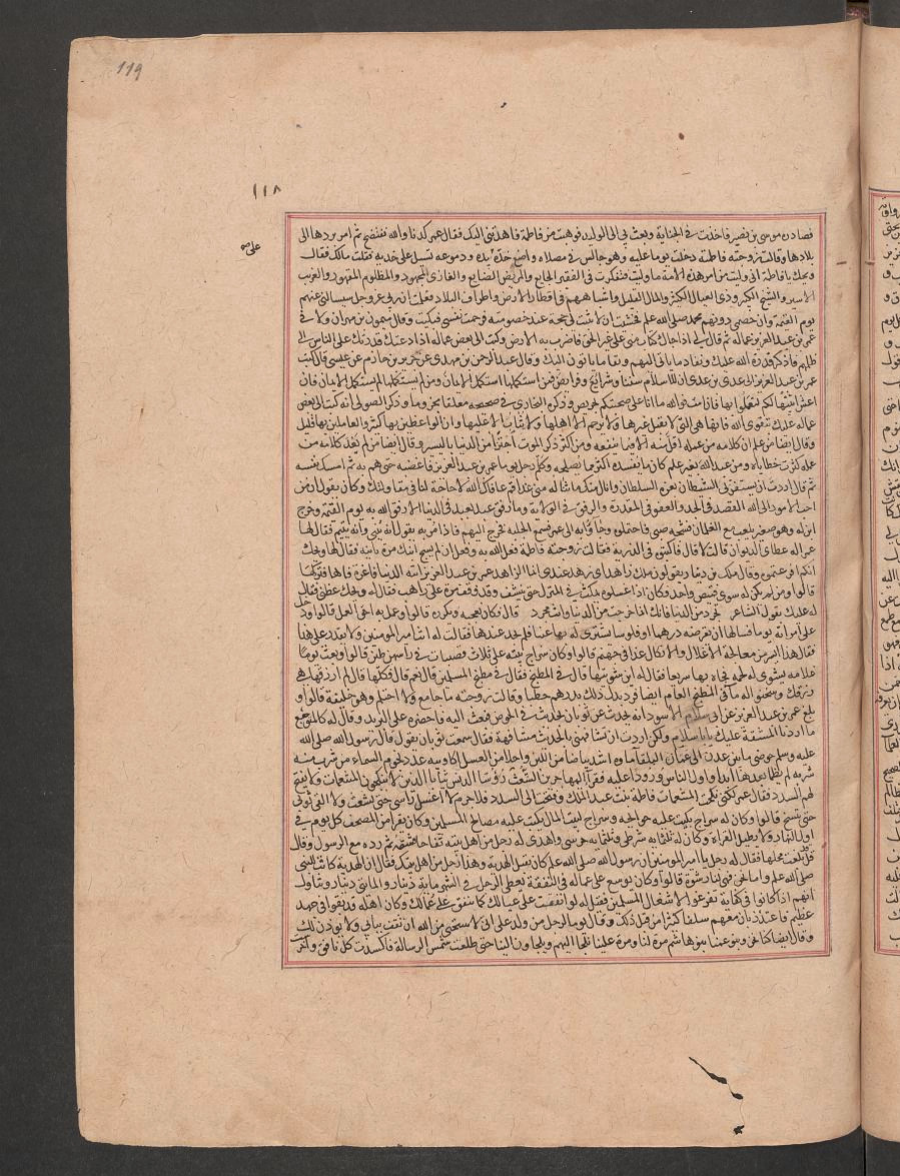 119
١١٨
فصادن موسى بن نصير فاخذت في الجناية وبعث بي الى الوليد فوهبت من فاطمة فاهدتنى اليك فقال عمر كدنا والله نفتضح ثم امر بردها الى
بلادها وقالت زوجته فاطمة دخلت يوما عليه وهو جالس في مصلاه واضع خده على يده ودموعه تسيل على خديه فقلت مالك فقال
ويحك يا فاطمة انى وليت من امر هذه الامة ما وليت فتفكرت في الفقير الجايع والمريض الضايع والغازى المجهود والمظلوم المقهور والغريب
الاسير والشيخ الكبير وذى العيال الكثير والمال القليل واشباههم في اقطار الارض واطراف البلاد فعلمت ان ربى عز وجل سيسالنى عنهم
يوم القيمة وان خصمى دونهم محمد صلى الله علم فخشيت ان لا تثبت لى حجة عند خصومته فرحمت نفسى فبكيت وقال ميمون بن مهران ولانى
عمر بن عبد العزيز عمالة ثم قال لى اذا جاك كتاب منى على غير الحق فاضرب به الارض وكتب الى بعض عماله اذا دعتك قدرتك على الناس الى
ظلمهم فاذكر قدرة الله عليك ونفاد ما ياتى اليهم وبقا ما ياتون اليك وقال عبد الرحمن بن مهدى عن جرير بن حازم عن عيسى قال كتب
عمر بن عبد العزيز الى عدى بن عدى ان للاسلام سننا وشرائع وفرايض فمن استكملها استكمل الايمان ومن لم يستكملها لم يستكمل الايمان فان
اعش ابينها لكم لتعملوا بها وان امت فوالله ما انا على صحبتكم بحريص وذكره البخارى في صحيحه معلقا مجزوما وذكر الصولى انه كتب الى بعض
عماله عليك بتقوى الله فانها هى التى لا يقبل غيرها ولا يرحم الا اهلها ولا يثاب الا عليها وان الواعظين بها كثير والعاملين بها قليل
وقال ايضا من علم ان كلامه من عمله اقل منه الا فيما ينفعه ومن اكثر ذكر الموت اجتزا من الدنيا باليسير وقال ايضا من لم يعد كلامه من
عمله كثرت خطاياه ومن عبد الله بغير علم كان ما يفسد اكثر مما يصلحه وكلم رجل يوما عمر بن عبد العزيز فاغضبه حتى هم به ثم امسك نفسه
ثم قال اردت ان يستفزنى الشيطان بعزة السلطان وانال منك ما تناله منى غدا قم عافاك الله لا حاجة لنا في مقاولتك وكان يقول ان من
احب الامور الى الله القصد في الجد والعفو في المقدرة والرفق في الولاية وما رفق عبد بعبد في الدنيا الا رفق الله به يوم القيمة وخرج
ابن له وهو صغير يلعب مع الغلمان فشجه صبى فاحتملوه وجاؤا به الى عمر فسمع الجلبة فخرج اليهم فاذا مريه تقول انه بنى وانه يتيم فقال لها
عمر اله عطا في الديوان قالت لا قال فاكتبوه في الذرية فقالت زوجته فاطمة فعل الله به وفعل ان لم يشج ابنك مرة ثانية فقال لها ويحك
انكم افزعتموه وقال ملك بن دينار يقولون ملك زاهد اى زهد عندى انما الزاهد عمر بن عبد العزيز اتته الدنيا فاغرة فاها فتركها
قالوا ولم يكن له سوى قميص واحد فكان اذا غسلوه مكث في المنزل حتى ينشف وقد وقف مرة على راهب فقال له ويحك عظنى فقال
له عليك بقول الشاعر تجرد من الدنيا فانك انما خرجت من الدنيا وانت مجرد قال فكان يعجبه ويكرره قالوا وعمل به احق العمل قالوا ودخل
على امراته يوما فسالها ان تقرضه درهما او فلوسا يشترى له بها عنبا فلم يجد عندها فقالت له انت امير المومنين ولا تقدر على هذا
فقال هذا ايسر من معالجة الاغلال والانكال غدا في جهنم قالوا وكان سراج بيته على ثلاث قصبات في راسهن طين قالوا وبعث يوما
غلامه ليشوى له لحمة فجاه بها سريعا فقال له اين شويتها قال في المطبخ فقال في مطبخ المسلمين قال نعم قال فكلها فانى لم ارزقها هى
رزقك وسخنوا له ما في المطبخ العام ايضا فرد بدل ذلك بدرهم حطبا وقالت زوجته ما جامع ولا احتلم وهو خليفة قالوا و
بلغ عمر بن عبد العزيز عن ابى سلام الاسود انه يحدث عن ثوبان بحديث في الحوض فبعث اليه فاحضره على البريد وقال له كالمتوجع
ما اردنا المشقة عليك يا ابا سلام ولكن اردت ان تشافهنى بالحديث مشافهة فقال سمعت ثوبان يقول قال رسول الله صلى الله
عليه وسلم حوضى ما بين عدن الى عمان البلقا ماوه اشد بياضا من اللبن واحلا من العسل اكاوسه عدد نجوم السماء من شرب منه
شربة لم يظما بعدها ابدا واول الناس ورودا عليه فقرآ المهاجرين الشعث رؤسا الدنس ثيابا الذين لا ينكحون المتنعمات ولا تفتح
لهم السدد فقال عمر لكنى نكحت المتنعمات فاطمة بنت عبد الملك وفتحت لى السدد فلا جرم لا اغسل راسى حتى يشعث ولا القى ثوبى
حتى يتسخ قالوا وكان له سراج يكتب عليه حوائجه وسراج لبيت المال يكتب عليه مصالح المسلمين وكان يقرا من المصحف كل يوم في
اول النهار ولا يطيل القراءة وكان له ثلثمايه شرطى وثلثمايه حرسى واهدى له رجل من اهل بيته تفاحا فشمه ثم رده مع الرسول وقال
قل بلغت محلها فقال له رجل يا امير المومنين ان رسول الله صلى الله علم كان يقبل الهدية وهذا رجل من اهل بيتك فقال ان الهدية كانت للنبى
صلى الله علم واما نحن فهى لنا رشوة قالوا وكان يوسع على عماله في النفقة يعطى الرجل في الشهر ماية دينار والمايتى دينار ويتاول
انهم اذا كانوا في كفاية تفرغوا لاشغال المسلمين فقيل له لو انفقت على عيالك كما تنفق على عمالك وكان اهله قد بقوا في جهد
عظيم فاعتذر بان معهم سلفا كثيرا من قبل ذلك وقال يوما لرجل من ولد على انى لاستحيى من الله ان تقف ببابى ولا يوذن لك
وقال ايضا كنا نحن وبنو عمنا بنو هاشم مرة لنا ومرة علينا نلجا اليهم ويلجاون الينا حتى طلعت شمس الرسالة فاكسدت كل نافق واخرست